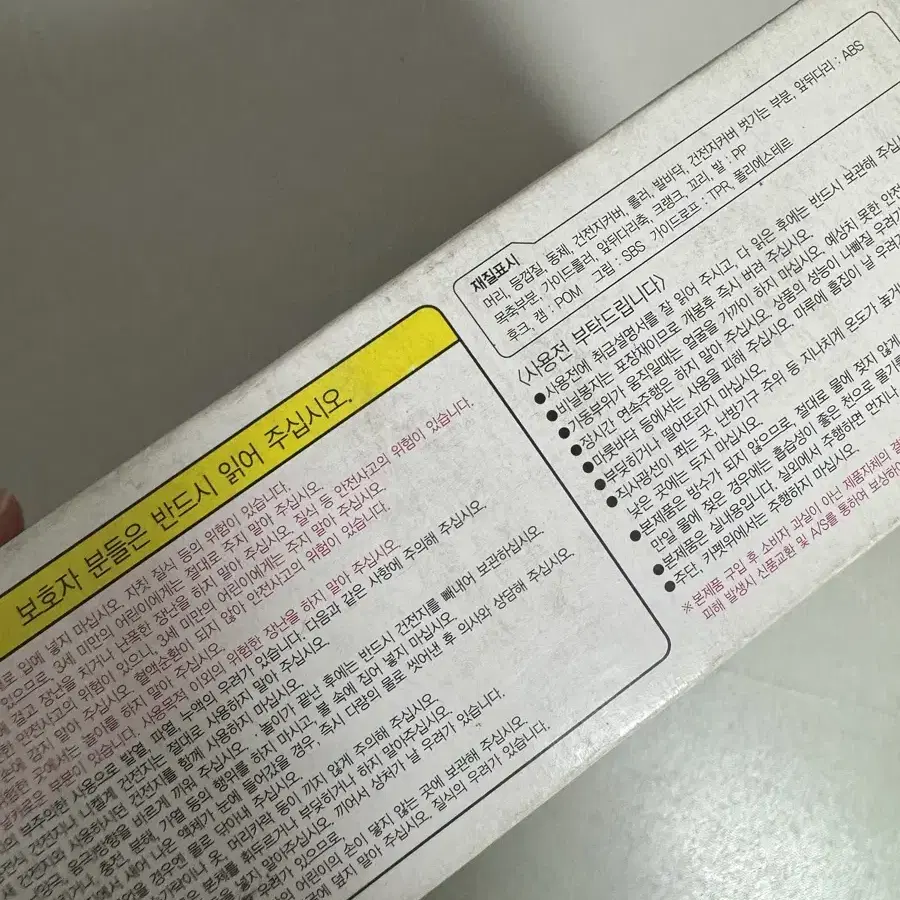 재질표시
머리, 등껍질, 동체, 건전지커버, 롤러, 발바닥, 건전지커버 벗기는 부분, 앞뒤다리 : ABS
목축부분, 가이드롤러, 앞뒤다리축, 크랭크, 꼬리, 발 : PP
후크, 캠 : POM 그립 : SBS 가이드로프 : TPR, 폴리에스테르
〈사용전 부탁드립니다〉
●사용전에 취급설명서를 잘 읽어 주시고, 다 읽은 후에는 반드시 보관해 주십시오
●비닐봉지는 포장재이므로 개봉후 즉시 버려 주십시오.
●가동부위가 움직일때는 얼굴을 가까이 하지 마십시오. 예상치 못한 안전
●장시간 연속주행은 하지 말아 주십시오. 상품의 성능이 나빠질 우려가
●마룻바닥 등에서는 사용을 피해 주십시오. 마루에 흠집이 날 우려가
●부딪히거나 떨어뜨리지 마십시오.
●직사광선이 쬐는 곳, 난방기구 주위 등 지나치게 온도가 높거
낮은 곳에는 두지 마십시오.
●본제품은 방수가 되지 않으므로, 절대로 물에 젖지 않게
만일 물에 젖은 경우에는 흡습성이 좋은 천으로 물기를
●본제품은 실내용입니다. 실외에서 주행하면 먼지나
●주단, 카펫위에서는 주행하지 마십시오.
※ 본제품 구입 후 소비자 과실이 아닌 제품자체의 결
피해 발생시 신품교환 및 A/S를 통하여 보상하여
보호자 분들은 반드시 읽어 주십시오.
로 입에 넣지 마십시오. 자칫 질식 등의 위험이 있습니다.
있으므로, 3세 미만의 어린이에게는 절대로 주지 말아 주십시오.
에 걸고 장난을 치거나 난폭한 장난을 하지 말아 주십시오. 질식 등 안전사고의 위험이 있습니다.
한 안전사고의 위험이 있으니, 3세 미만의 어린이에게는 주지 말아 주십시오.
손에 감지 말아 주십시오. 혈액순환이 되지 않아 안전사고의 위험이 있습니다.
위험한 곳에서는 놀이를 하지 말아 주십시오.
부분이 있습니다. 사용목적 이외의 위험한 장난을 하지 말아 주십시오.
부주의한 사용으로 발열, 파열, 누액의 우려가 있습니다. 다음과 같은 사항에 주의해 주십시오.
건전지나 니켈계 건전지는 절대로 사용하지 말아 주십시오.
건전지와 사용하시던 건전지를 함께 사용하지 마십시오.
음극)방향을 바르게 끼워 주십시오. 놀이가 끝난 후에는 반드시 건전지를 빼내어 보관하십시오.
충전 분해, 가열 등의 행위를 하지 마시고, 물 속에 집어 넣지 마십시오.
에서 새어 나온 액체가 눈에 들어갔을 경우, 즉시 다량의 물로 씻어낸 후 의사와 상담해 주십시오.
을 경우에는 물로 닦아내 주십시오.
손가락이나 옷, 머리카락 등이 끼지 않게 주의해 주십시오.
본제를 휘두르거나, 부딪히거나 하지 말아주십시오.
을 넣지 말아주십시오. 끼어서 상처가 날 우려가 있습니다.
우려가 있으므로
의 어린이의 손이 닿지 않는 곳에 보관해 주십시오.
에 덮지 말아 주십시오. 질식의 우려가 있습니다.